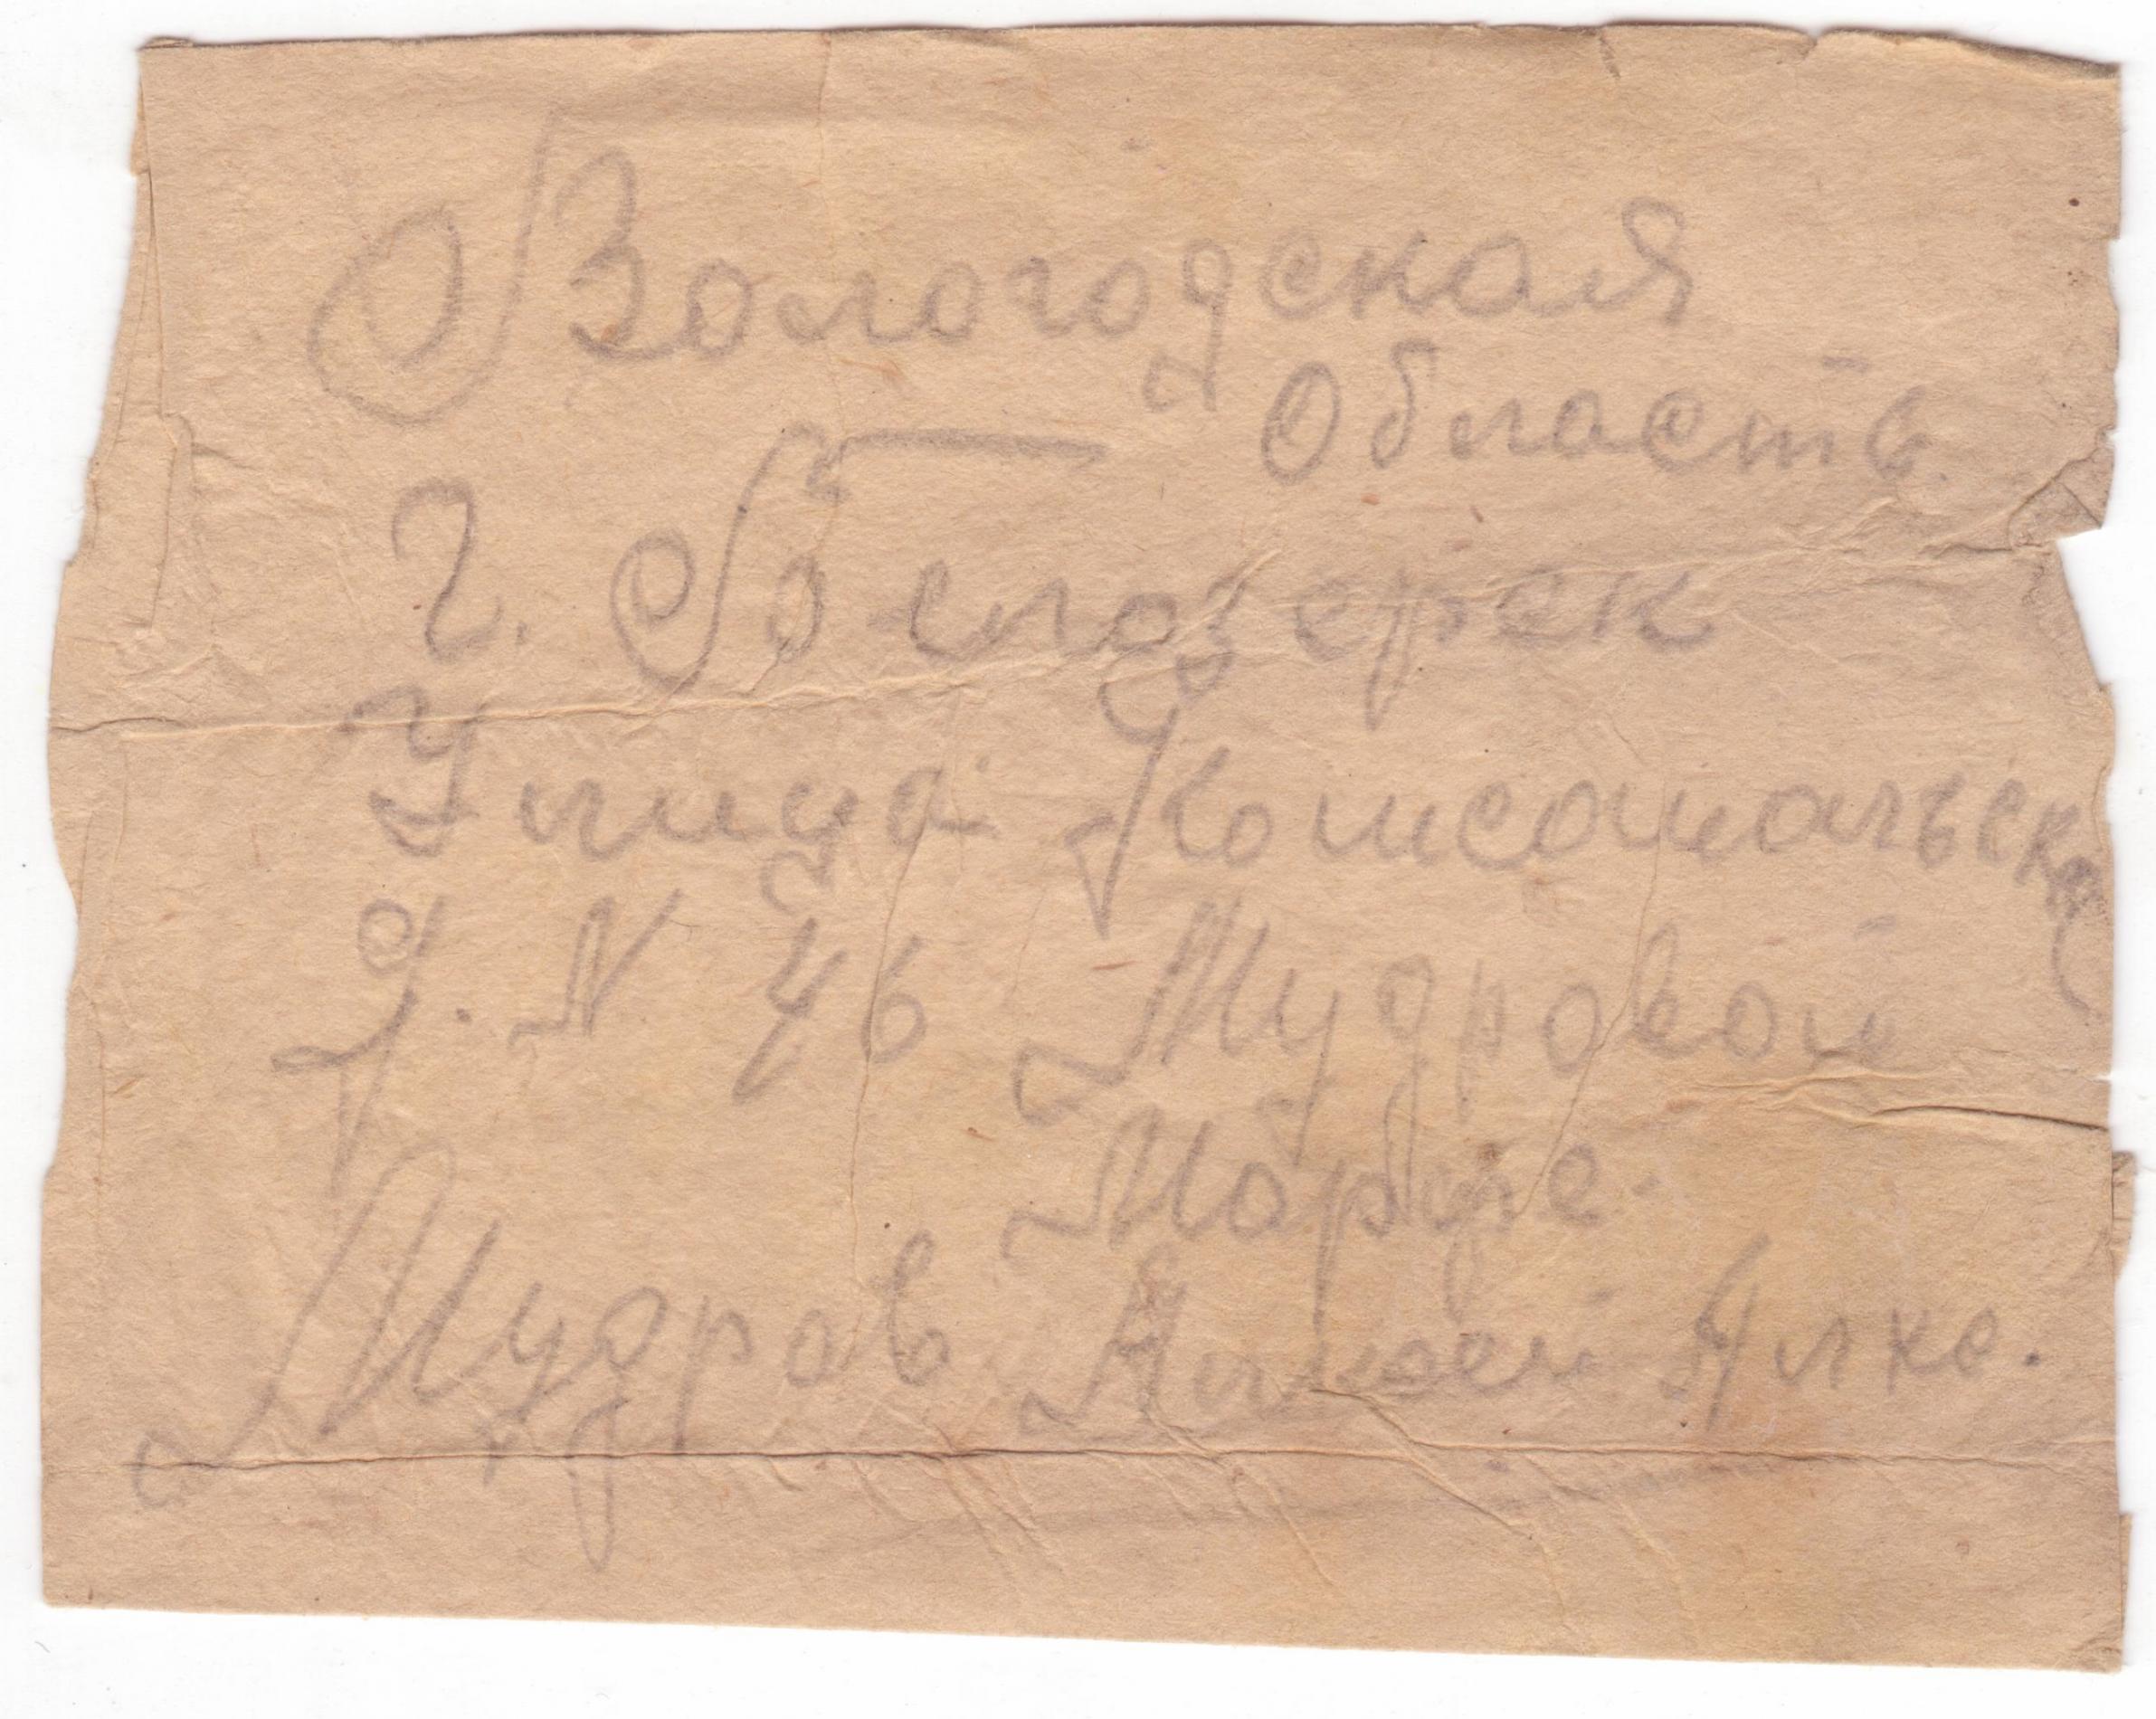 Вологодская
Область
г. Белозерск
Улица Комсомольская
д. N 46 Мудровой
Марфе.
Мудров Алексей Алке.